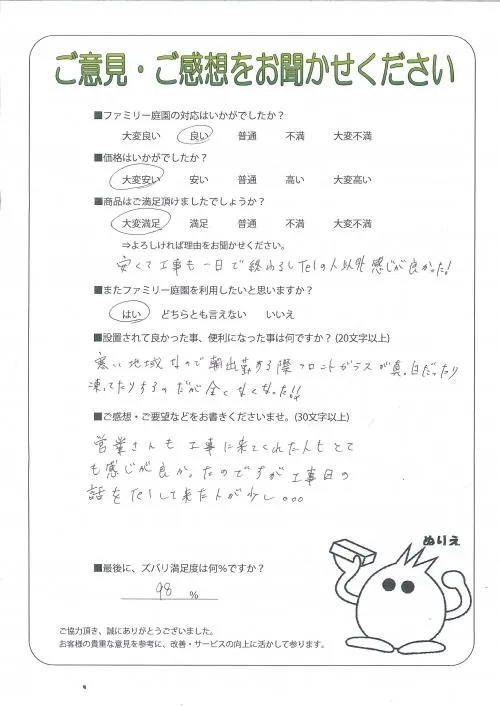 ご意見・ご感想をお聞かせください
■ファミリー庭園の対応はいかがでしたか？
大変良い 良い 普通 不満 大変不満
■価格はいかがでしたか？
大変安い 安い 普通 高い 大変高い
■商品はご満足頂けましたでしょうか？
大変満足 満足 普通 不満 大変不満
⇒よろしければ理由をお聞かせください。
安くて工事も一日で終わるしtelの人以外感じが良かった！
■またファミリー庭園を利用したいと思いますか？
はい どちらとも言えない いいえ
■設置されて良かった事、便利になった事は何ですか？(20文字以上)
寒い地域なので朝出勤する際フロントガラスが真っ白だったり
凍ってたりするのだが全くなくなった!!
■ご感想・ご要望などをお書きくださいませ。(30文字以上)
営業さんも工事に来てくれた人もとて
も感じが良かったのですが工事日の
話をtelして来た人が少し。。。
ぬりえ
■最後に、ズバリ満足度は何％ですか？
98 ％
ご協力頂き、誠にありがとうございました。
お客様の貴重な意見を参考に、改善・サービスの向上に活かして参ります。